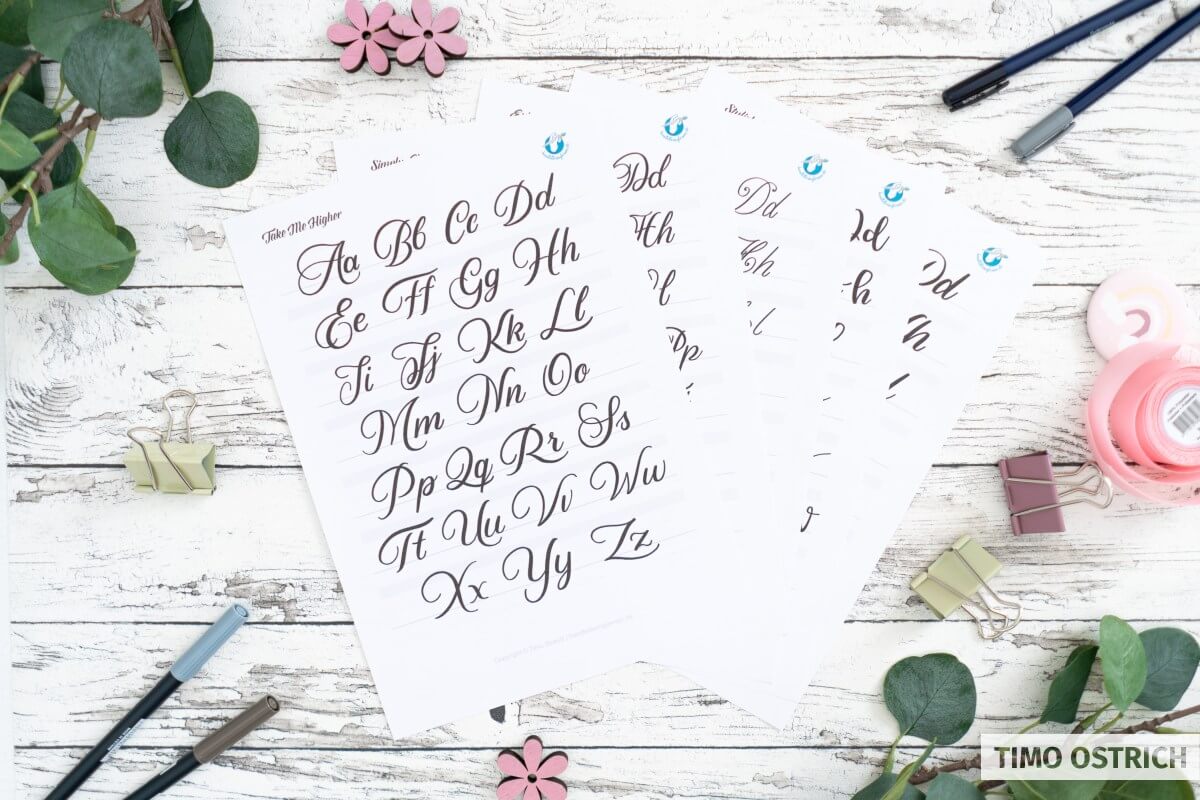 Take Me Higher
Aa Bb Cc Dd
Ee Ff Gg Hh
Ii Jj Kk Ll
Mm Nn Oo
Pp Qq Rr Ss
Tt Uu Vv Ww
Xx Yy Zz
Dd
Hh
l
Pp
Dd
Hh
l
Dd
h
Dd
h
TIMO OSTRICH